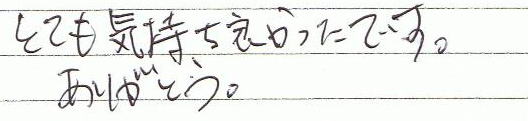 とても気持ち良かったです。
ありがとう。